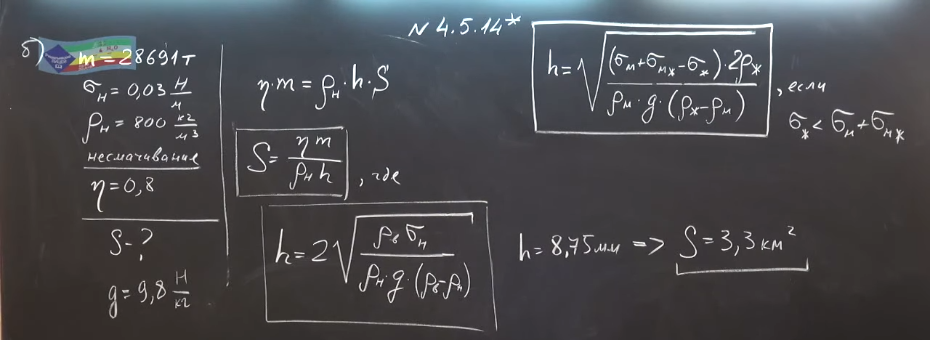 N 4.5.14*
б)
m = 28691 т
σн = 0,03 Н/м
ρн = 800 кг/м³
несмачивание
η = 0,8
S - ?
g = 9,8 Н/кг
η·m = ρн·h·S
S = ηm/ρнh , где
h = 2√(ρвσн/(ρн·g·(ρв-ρн)))
h = √((σм+σмж-σж)·2ρж/(ρм·g·(ρж-ρм))) , если
σж < σм + σмж
h = 8,75 мм => S = 3,3 км²